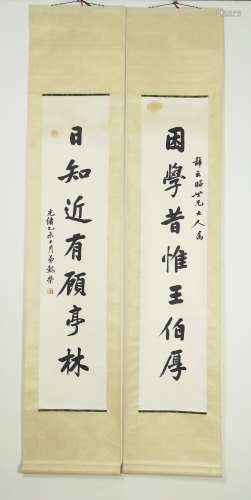 薛云昭世兄大人属
困學昔惟王伯厚
日知近有顧亭林
光緒乙未十月弟懿榮